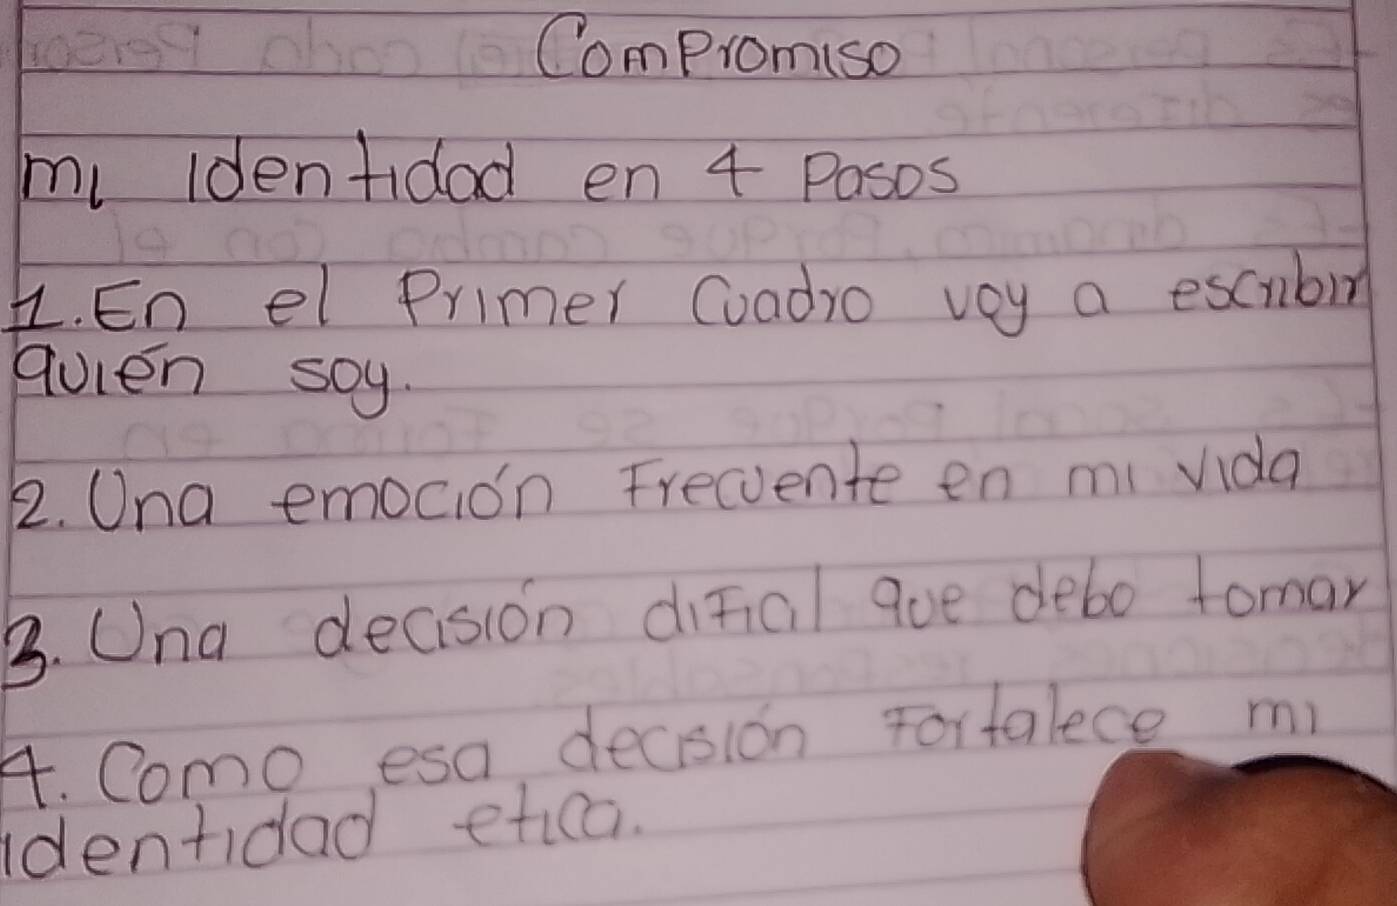 Compromiso
mi identidad en 4 Pasos
1. En el Primer Cuadro voy a escribir
quién soy.
2. Una emoción Frecuente en mi vida
3. Una decisión difícil que debo tomar
4. Como esa decisión Fortalece mi
identidad etica.